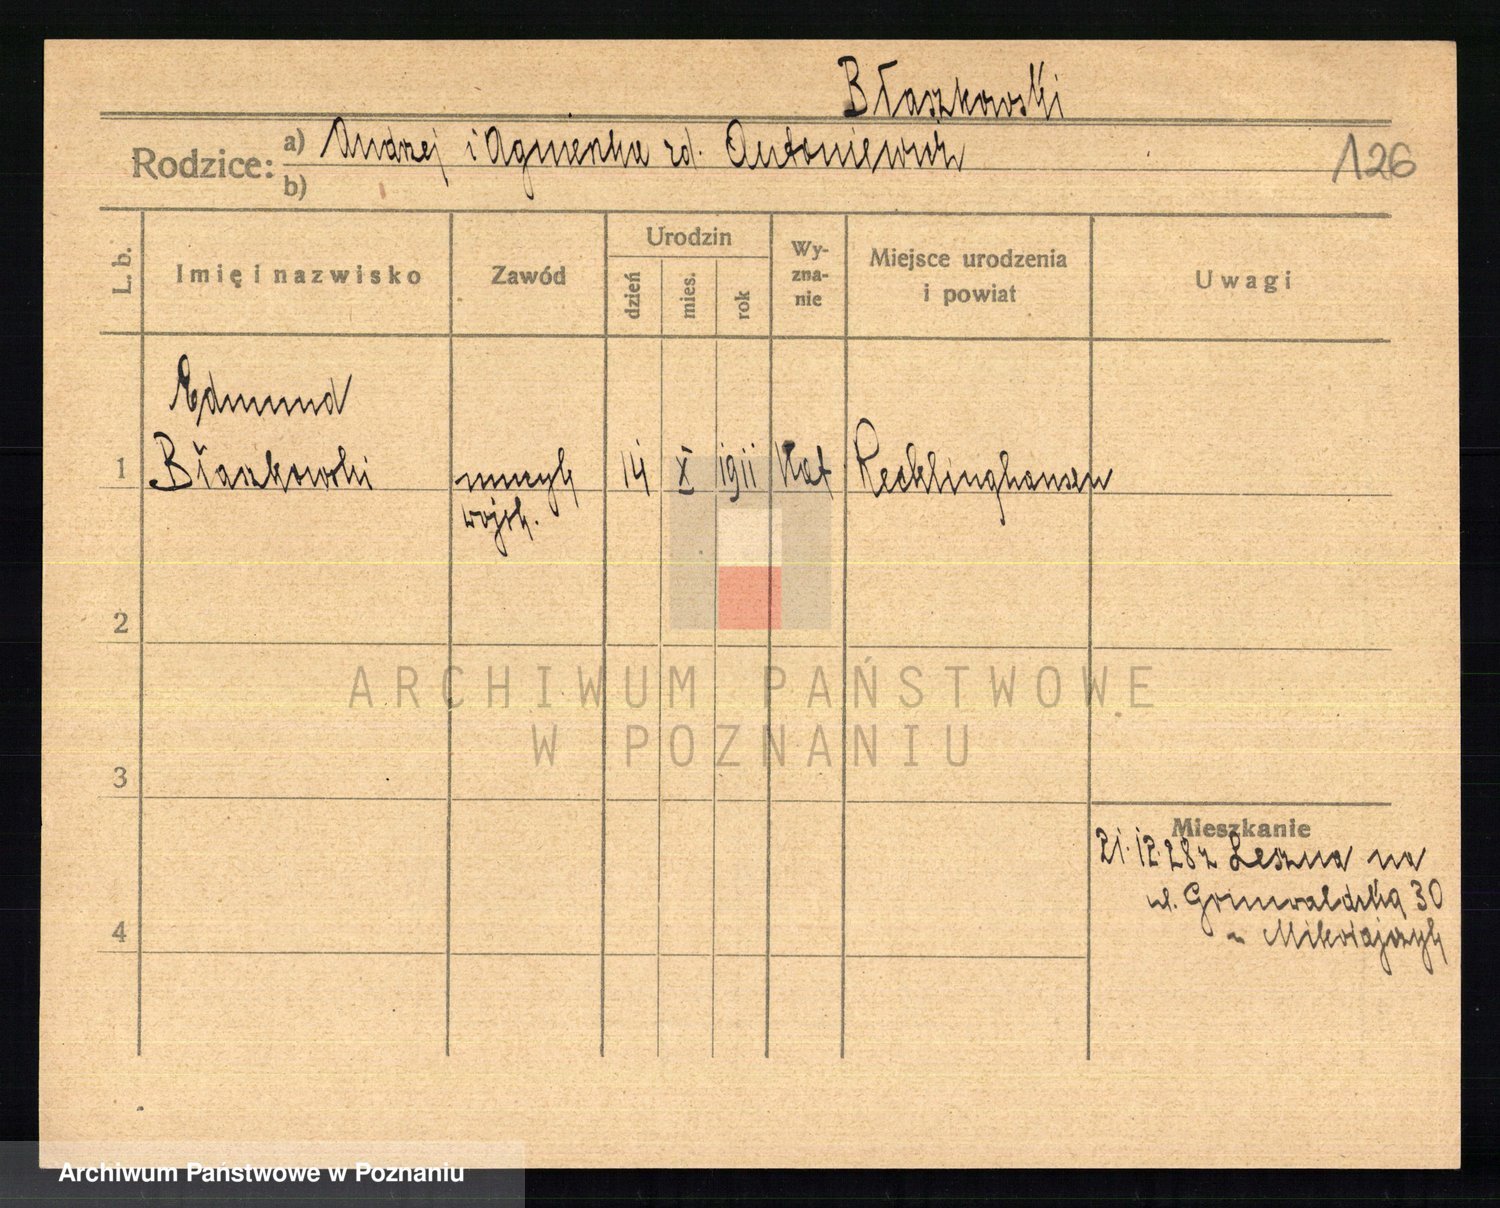 Błaszkowski
Rodzice: a) Andrzej i Agnieszka zd. Antoniewicz
b)
126
L. b.
Imię i nazwisko
Zawód
Urodzin
dzień
mies.
rok
Wy-
zna-
nie
Miejsce urodzenia
i powiat
Uwagi
Edmund
1 Błaszkowski muzyk 14 X 1911 Kat Recklinghausen
wojsk.
2
ARCHIWUM PAŃSTWOWE
W POZNANIU
3
Mieszkanie
21.12.28 z Leszna na
ul. Grunwaldzką 30
Mikołajczyk
4
Archiwum Państwowe w Poznaniu